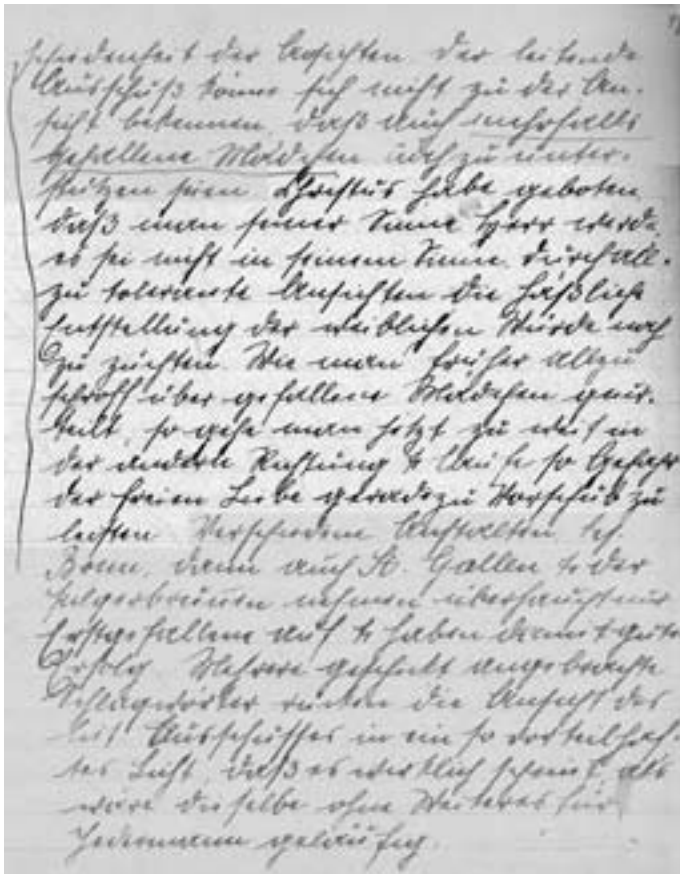 schiedenheit der Ansichten. Der leitende
Ausschuß könne sich nicht zu der An-
sicht bekennen, daß auch mehrfalls
gefallene Mädchen noch zu unter-
stützen seien. Christus habe geboten
daß man seiner Sinne Herr werde,
es sei nicht in seinem Sinne, durch all-
zu tolerante Ansichten die häßliche
Entstellung der weiblichen Würde noch
zu züchten. Wie man früher allzu
schroff über gefallene Mädchen geur-
teilt, so gehe man jetzt zu weit in
der andern Richtung & laufe so Gefahr
der freien Liebe geradezu Vorschub zu
leisten. Verschiedene Anstalten,
dann auch St. Gallen & der
Pilgerbrunnen nehmen überhaupt nur
Erstgefallene auf & haben damit guten
Erfolg. Mehrere geschickt angebrachte
Schlagwörter rücken die Ansicht des
leit. Ausschusses in ein so vorteilhaf-
tes Licht, daß es wirklich scheint, als
wäre dieselbe ohne Weiteres für
Jedermann geläufig.